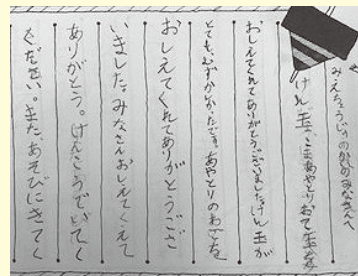 みなさんへ
けん玉、こま、あやとり、おて玉を
おしえてくれてありがとうございました。けん玉が
とても、むずかしかったです。あやとりのわざを
おしえてくれてありがとうござ
いました。みなさんおしえてくえて
ありがとう。げんこうでいてく
ださい。また、あそびにきてく